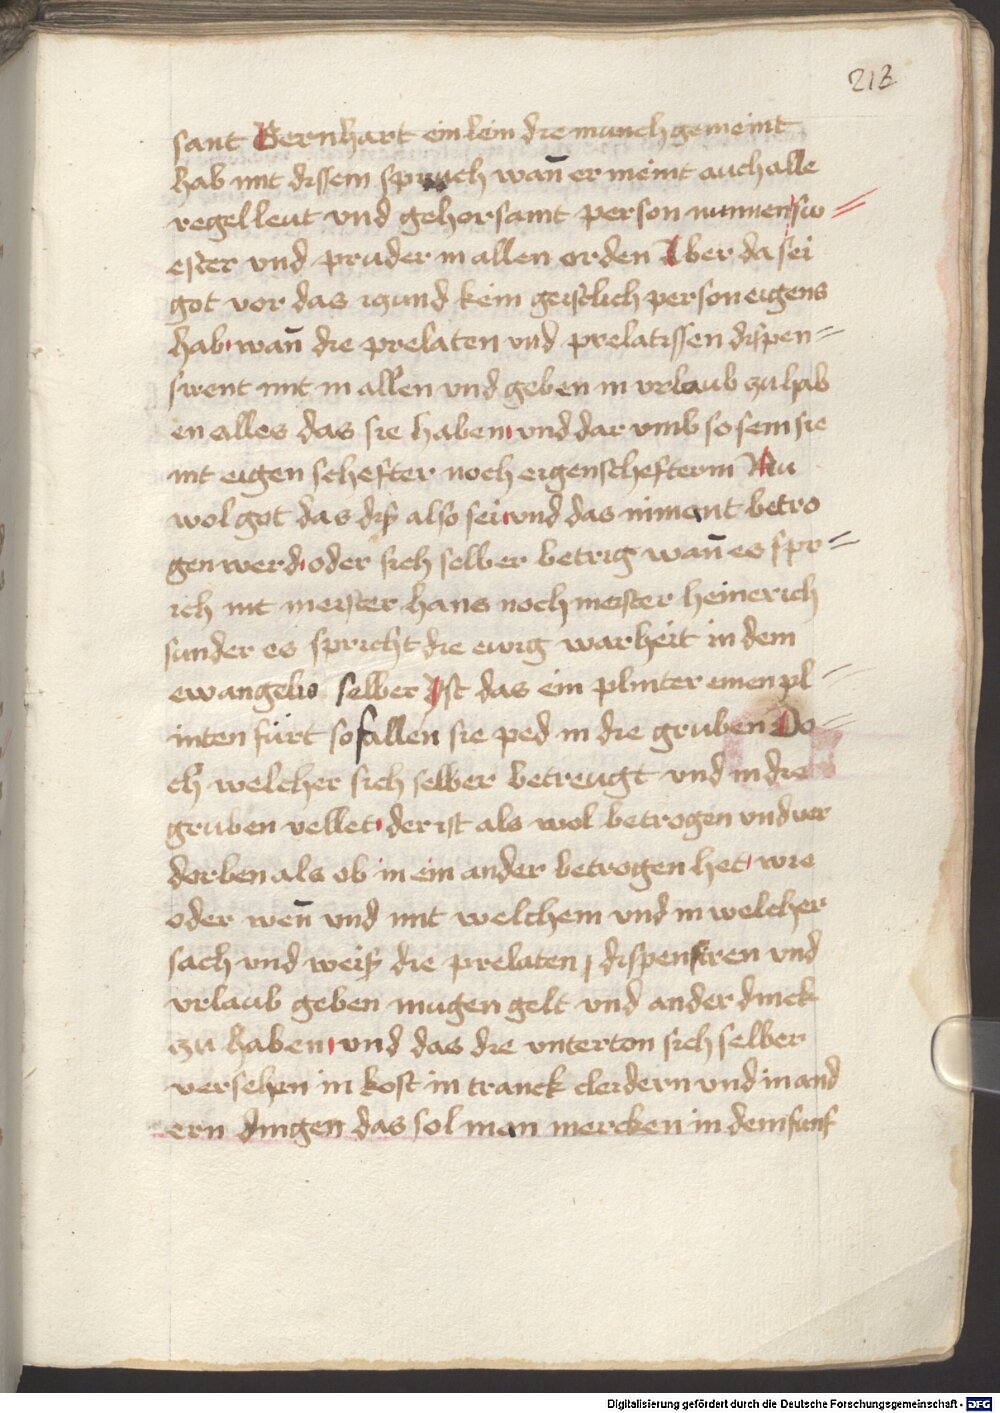 213
sant Bernhart ein lein die munch gemeint
hab mit dissem spruch wañ er meint auch alle
regel leut vnd gehorsamt person nunnen sw=
ester vnd pruder in allen orden Aber da sei
got vor das iczund kein geistlich person eigens
hab wañ die prelaten vnd prelatissen dispen=
sirent mit in allen vnd geben in vrlaub zu hab
en alles das sie haben vnd dar vmb so sein sie
nit eigen schefter noch eigenschefterin Nu
wol got das diß also sei vnd das nimant betro
gen werd oder sich selber betrig wañ es spr=
ich nit meister hans noch meister heinrich
sunder es spricht die ewig warheit in dem
ewangelio selber Ist das ein plinter einen pl=
inten fürt so fallen sie ped in die gruben Do=
ch welcher sich selber betreugt vnd in die
gruben vellet der ist als wol betrogen vnd ver
dorben als ob in ein ander betrogen het wie
oder weñ vnd mit welchem vnd in welcher
sach vnd weiß die prelaten dispensiren vnd
vrlaub geben mugen gelt vnd ander dinck
zu haben vnd das die vnterton sich selber
versehen in kost in tranck cleidern vnd in and
ern dingen das sol man mercken in dem funf
Digitalisierung gefördert durch die Deutsche Forschungsgemeinschaft - DFG